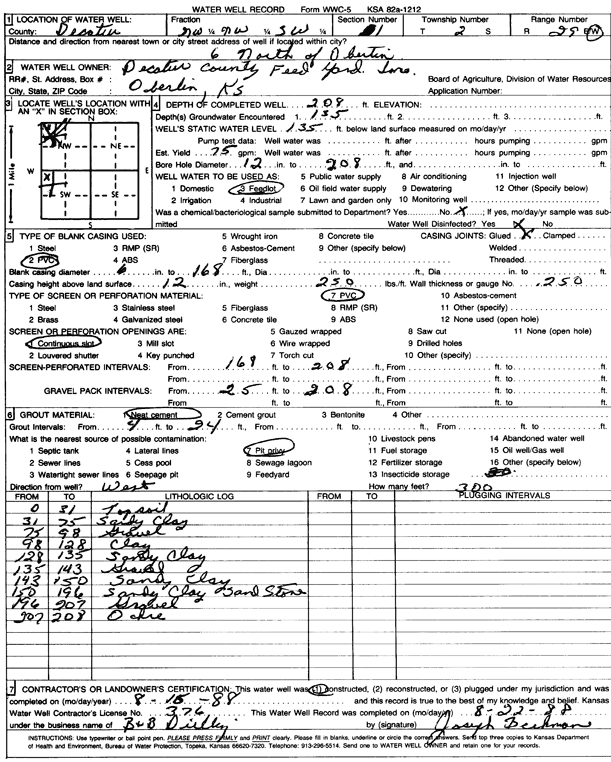 WATER WELL RECORD Form WWC-5 KSA 82a-1212
1 LOCATION OF WATER WELL: Fraction Section Number Township Number Range Number
County: Decatur NW ¼ NW ¼ SW ¼ 1 T 2 S R 29 E/W
Distance and direction from nearest town or city street address of well if located within city?
6 North of Oberlin
2 WATER WELL OWNER: Decatur County Feed Yard Inc.
RR#, St. Address, Box #: Board of Agriculture, Division of Water Resources
City, State, ZIP Code : Oberlin, KS Application Number:
3 LOCATE WELL'S LOCATION WITH AN "X" IN SECTION BOX:
N
NW NE
W E
SW SE
S
1 Mile
4 DEPTH OF COMPLETED WELL 208 ft. ELEVATION:
Depth(s) Groundwater Encountered 1. 135 ft. 2. ft. 3. ft.
WELL'S STATIC WATER LEVEL 135 ft. below land surface measured on mo/day/yr
Pump test data: Well water was ft. after hours pumping gpm
Est. Yield 75 gpm: Well water was ft. after hours pumping gpm
Bore Hole Diameter 12 in. to 208 ft., and in. to ft.
WELL WATER TO BE USED AS: 5 Public water supply 8 Air conditioning 11 Injection well
1 Domestic 3 Feedlot 6 Oil field water supply 9 Dewatering 12 Other (Specify below)
2 Irrigation 4 Industrial 7 Lawn and garden only 10 Monitoring well
Was a chemical/bacteriological sample submitted to Department? Yes No X ; If yes, mo/day/yr sample was submitted Water Well Disinfected? Yes X No
5 TYPE OF BLANK CASING USED: 5 Wrought iron 8 Concrete tile CASING JOINTS: Glued X Clamped
1 Steel 3 RMP (SR) 6 Asbestos-Cement 9 Other (specify below) Welded
2 PVC 4 ABS 7 Fiberglass Threaded
Blank casing diameter 6 in. to 168 ft., Dia in. to ft., Dia in. to ft.
Casing height above land surface 12 in., weight .250 lbs./ft. Wall thickness or gauge No. .250
TYPE OF SCREEN OR PERFORATION MATERIAL: 7 PVC 10 Asbestos-cement
1 Steel 3 Stainless steel 5 Fiberglass 8 RMP (SR) 11 Other (specify)
2 Brass 4 Galvanized steel 6 Concrete tile 9 ABS 12 None used (open hole)
SCREEN OR PERFORATION OPENINGS ARE: 5 Gauzed wrapped 8 Saw cut 11 None (open hole)
1 Continuous slot 3 Mill slot 6 Wire wrapped 9 Drilled holes
2 Louvered shutter 4 Key punched 7 Torch cut 10 Other (specify)
SCREEN-PERFORATED INTERVALS: From 168 ft. to 208 ft., From ft. to ft.
From ft. to ft., From ft. to ft.
GRAVEL PACK INTERVALS: From 25 ft. to 208 ft., From ft. to ft.
From ft. to ft., From ft. to ft.
6 GROUT MATERIAL: 1 Neat cement 2 Cement grout 3 Bentonite 4 Other
Grout Intervals: From 4 ft. to 24 ft., From ft. to ft., From ft. to ft.
What is the nearest source of possible contamination: 10 Livestock pens 14 Abandoned water well
1 Septic tank 4 Lateral lines 7 Pit privy 11 Fuel storage 15 Oil well/Gas well
2 Sewer lines 5 Cess pool 8 Sewage lagoon 12 Fertilizer storage 16 Other (specify below)
3 Watertight sewer lines 6 Seepage pit 9 Feedyard 13 Insecticide storage
Direction from well? West How many feet? 300
FROM TO LITHOLOGIC LOG FROM TO PLUGGING INTERVALS
0 31 Topsoil
31 75 Sandy Clay
75 98 Gravel
98 128 Clay
128 135 Sandy Clay
135 143 Gravel
143 150 Sandy Clay
150 196 Sandy Clay Sand Stone
196 207 Gravel
207 208 Ochre
7 CONTRACTOR'S OR LANDOWNER'S CERTIFICATION: This water well was (1) constructed, (2) reconstructed, or (3) plugged under my jurisdiction and was
completed on (mo/day/year) 8-15-88 and this record is true to the best of my knowledge and belief. Kansas
Water Well Contractor's License No. 376 This Water Well Record was completed on (mo/day/yr) 8-22-88
under the business name of B&B Drilling by (signature) Joseph Beckman
INSTRUCTIONS: Use typewriter or ball point pen. PLEASE PRESS FIRMLY and PRINT clearly. Please fill in blanks, underline or circle the correct answers. Send top three copies to Kansas Department
of Health and Environment, Bureau of Water Protection, Topeka, Kansas 66620-7320. Telephone: 913-296-5514. Send one to WATER WELL OWNER and retain one for your records.